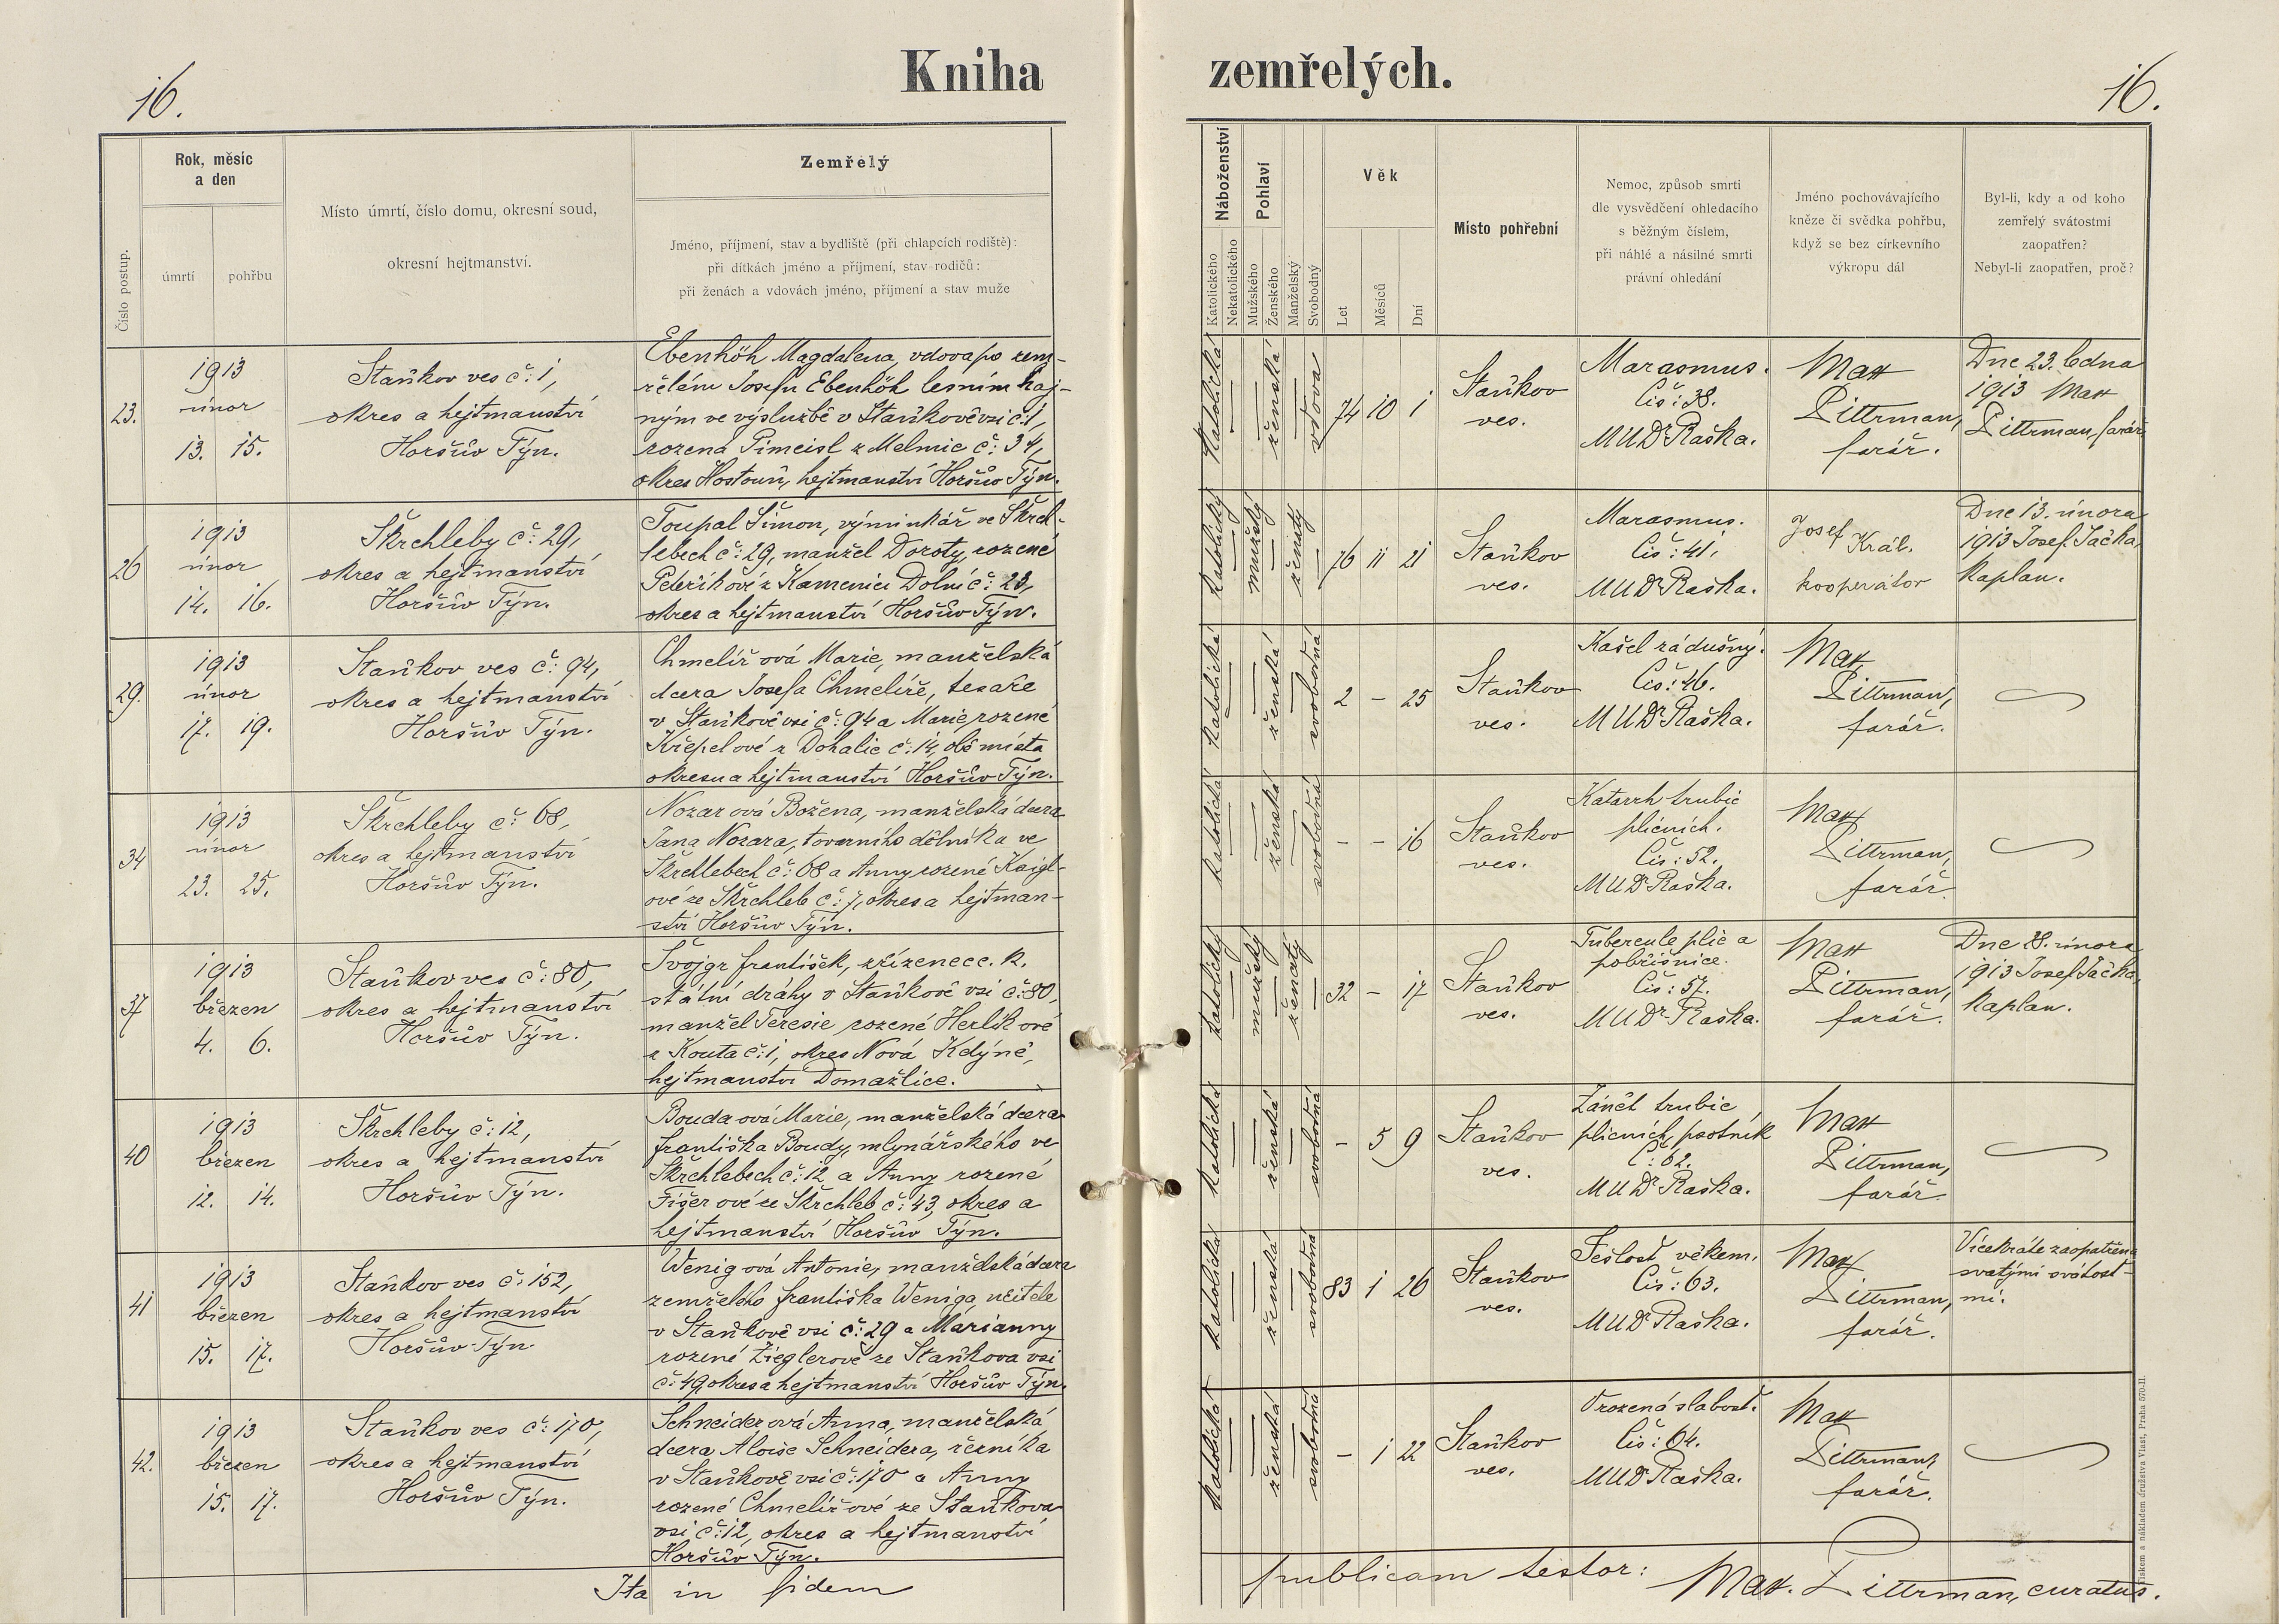 16.
Kniha
zemřelých.
16.
Číslo postup.
Rok, měsíc
a den
úmrtí
pohřbu
Místo úmrtí, číslo domu, okresní soud,
okresní hejtmanství.
Zemřelý
Jméno, příjmení, stav a bydliště (při chlapcích rodiště):
při dítkách jméno a příjmení, stav rodičů:
při ženách a vdovách jméno, příjmení a stav muže
Náboženství
Katolického
Nekatolického
Pohlaví
Mužského
Ženského
Manželský
Svobodný
Věk
Let
Měsíců
Dní
Místo pohřební
Nemoc, způsob smrti
dle vysvědčení ohledacího
s běžným číslem,
při náhlé a násilné smrti
právní ohledání
Jméno pochovávajícího
kněze či svědka pohřbu,
když se bez církevního
výkropu dál
Byl-li, kdy a od koho
zemřelý svátostmi
zaopatřen?
Nebyl-li zaopatřen, proč?
23.
1913
únor
13. 15.
Staňkov ves č: 1,
okres a hejtmanství
Horšův Týn.
Ebenhöh Magdalena, vdova po zem-
řelém Josefu Ebenhöh lesním haj-
ným ve výslužbě v Staňkově vsi č: 1,
rozená Pimeisl z Melmic č: 34,
okres Hostouň, hejtmanství Horšův Týn.
katolická
ženská
vdova
74 10 1
Staňkov
ves.
Marasmus.
Čís: 38.
MUDr Raška.
Max
Pittrman,
farář.
Dne 23. ledna
1913 Max
Pittrman, farář
26
1913
únor
14. 16.
Škrchleby č: 29,
okres a hejtmanství
Horšův Týn.
Toupal Šimon, výminkář ve Škrch-
lebech č: 29, manžel Doroty, rozené
Peteříkoví z Kamenice Dolní č: 23,
okres a hejtmanství Horšův Týn.
katolický
mužský
ženatý
76 11 21
Staňkov
ves.
Marasmus.
Čís: 41.
MUDr Raška.
Josef Král.
kooperátor
Dne 13. února
1913 Josef Jačka,
kaplan.
29.
1913
únor
17. 19.
Staňkov ves č: 94,
okres a hejtmanství
Horšův Týn.
Chmelíř ová Marie, manželská
dcera Josefa Chmelíře, tesaře
v Staňkově vsi č: 94 a Marie, rozené
Křepelové z Dohalic č: 14, obě místa
okresu a hejtmanství Horšův Týn.
katolická
ženská
svobodná
2 - 25
Staňkov
ves.
Kašel zádušný.
Čís: 46.
MUDr Raška.
Max
Pittrman,
farář.
34
1913
únor
23. 25.
Škrchleby č: 68,
okres a hejtmanství
Horšův Týn.
Nozar ová Božena, manželská dcera
Jana Nozara, továrního dělníka ve
Škrchlebech č: 68 a Anny rozené Kaigl-
ové ze Škrchleb č: 7, okres a hejtman-
ství Horšův Týn.
katolická
ženská
svobodná
- - 16
Staňkov
ves.
Katarrh trubic
plicních.
Čís: 52.
MUDr Raška.
Max
Pittrman,
farář
37
1913
březen
4. 6.
Staňkov ves č: 80,
okres a hejtmanství
Horšův Týn.
Švojgr František, zřízenec c. k.
státní dráhy v Staňkově vsi č: 80,
manžel Teresie rozené Herlík ové
z Kouta č: 1, okres Nová Kdýně,
hejtmanství Domažlice.
katolický
mužský
ženatý
32 - 17
Staňkov
ves.
Tubercule plic a
pobřišnice.
Čís: 57.
MUDr Raška.
Max
Pittrman,
farář.
Dne 28. února
1913 Josef Jačka,
kaplan.
40
1913
březen
12. 14.
Škrchleby č: 12,
okres a hejtmanství
Horšův Týn.
Bouda ová Marie, manželská dcera
Františka Boudy, mlynářského ve
Škrchlebech č: 12 a Anny rozené
Fišer ové ze Škrchleb č: 43, okres a
hejtmanství Horšův Týn.
katolická
ženská
svobodná
- 5 9
Staňkov
ves.
Zánět trubic
plicních, psotník
Č: 62.
MUDr Raška.
Max
Pittrman,
farář
41
1913
březen
15. 17.
Staňkov ves č: 152,
okres a hejtmanství
Horšův Týn.
Wenig ová Antonie, manželská dcera
zemřelého Františka Weniga, učitele
v Staňkově vsi č: 29 a Marianny
rozené Zieglerové ze Staňkova vsi
č: 49, okres a hejtmanství Horšův Týn.
katolická
ženská
svobodná
83 1 26
Staňkov
ves.
Sešlosť věkem.
Čís: 63.
MUDr Raška.
Max
Pittrman,
farář.
Vícekráte zaopatřena
svatými svátost-
mi.
42.
1913
březen
15. 17.
Staňkov ves č: 170,
okres a hejtmanství
Horšův Týn.
Schneider ová Anna, manželská
dcera Aloise Schneidera, řezníka
v Staňkově vsi č: 170 a Anny
rozené Chmelířové ze Staňkova
vsi, č: 12, okres a hejtmanství
Horšův Týn.
katolická
ženská
svobodná
- 1 22
Staňkov
ves.
Vrozená slabosť.
Čís: 64.
MUDr Raška.
Max
Pittrman,
farář.
Ita in fidem
publicam testor: Max. Pittrman, curatus.
Tiskem a nákladem družstva Vlast, Praha 570-II.